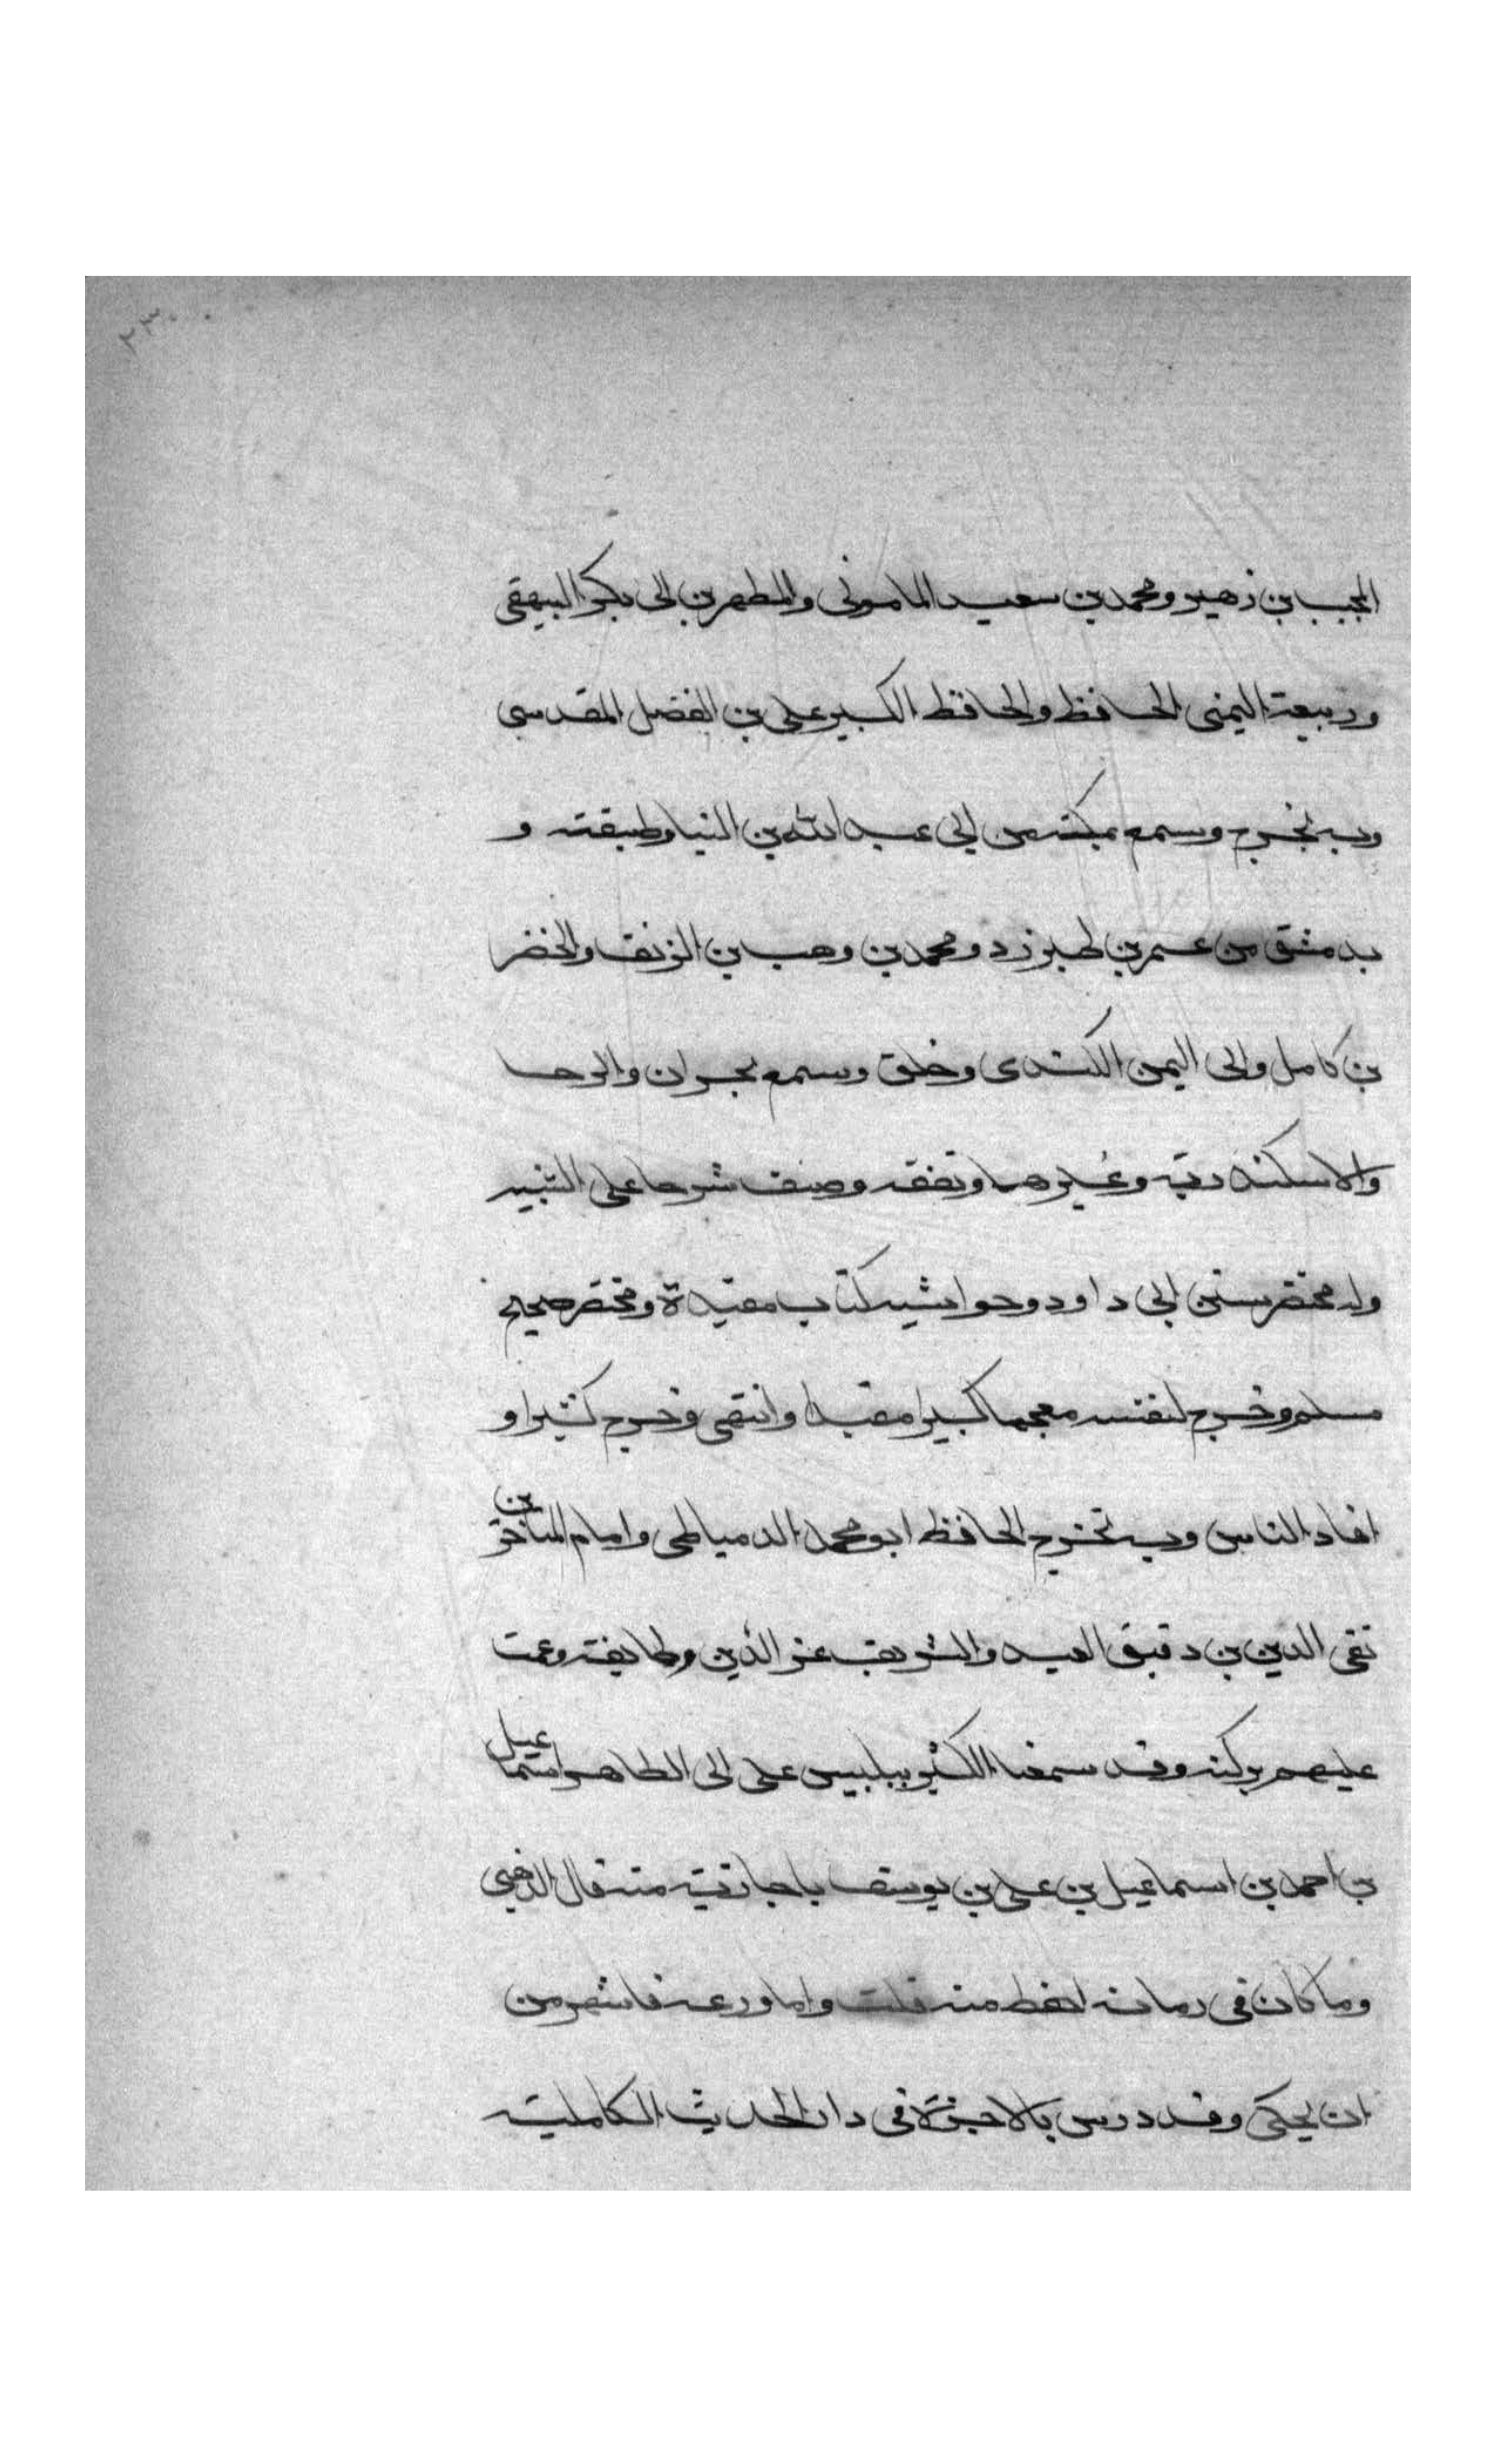 ٢٣٠
المجيب بن زهير ومحمد بن سعيد المامونى والمطهر بن ابى بكر البيهقى
وربيعة اليمنى الحافظ والحافظ الكبير على بن الفضل المقدسى
وبه تخرج وسمع بمكة من ابى عبد الله بن البنا وطبقته و
بدمشق من عمر بن طبرزد ومحمد بن وهب بن الزنف والخضر
بن كامل وابى اليمن الكندى وخلق وسمع بحران والرها
والاسكندرية وغيرهما وتفقه وصنف شرحا على التنبيه
وله مختصر سنن ابى داود وحواشيه كتاب مفيدة ومختصر صحيح
مسلم وخرج لنفسه معجما كبيرا مفيدا وانتقى وخرج كثيرا و
افاد الناس وبه تخرج الحافظ ابو محمد الدمياطى وامام المتاخرين
تقى الدين بن دقيق العيد والشريف عز الدين وطايفة وعمت
عليهم بركته وقد سمعنا الكثير ببلبيس على ابى الطاهر اسماعيل
بن احمد بن اسماعيل بن على بن يوسف باجازته منه قال الذهبى
وما كان فى زمانه احفظ منه قلت واما ورعه فاشهر من
ان يحكى وقد درس بالاخرة فى دار الحديث الكاملية